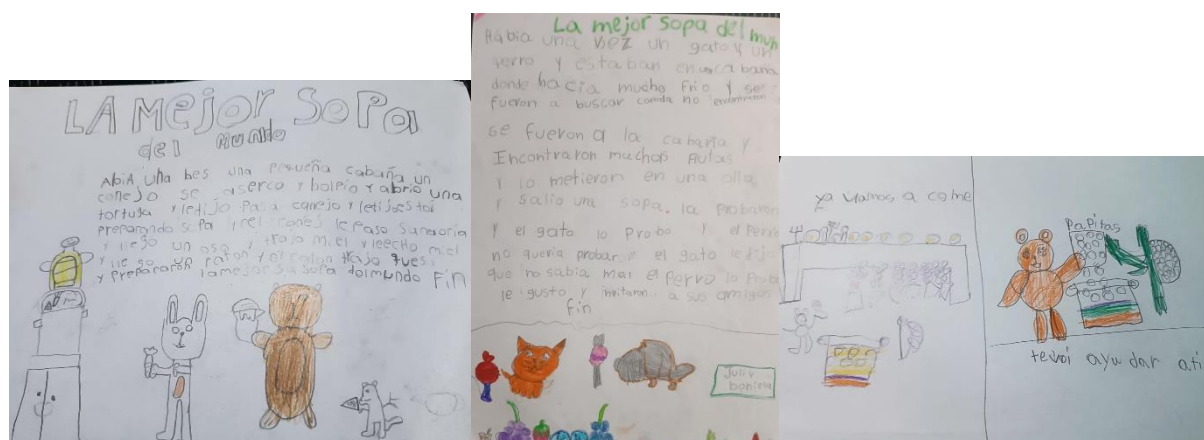 LA Mejor Sopa
del Mundo
Abia una bes una pequeña cabaña un
conejo se aserco y bolpio y abrio una
tortuga y letijo Pasa conejo y letijo stoi
preparando sopa y el conej le Paso sanaoria
y llego un oso y trajo miel y leecho miel
y llego un raton y el raton trajo quesi
y prepararon la mejor sopa del mundo Fin
La mejor sopa del mun
Había una vez un gato y un
perro y estaban en una cabaña
donde hacia mucho frio y se
fueron a buscar comida no encontraron
se fueron a la cabaña y
Encontraron muchas frutas
y lo metieron en una olla
y salio una sopa. la probaron
y el gato lo Probo y el Perro
no queria probar y el gato le dijo
que no sabia mal el perro lo Probo
le gusto y invitaron a sus amigos
Fin
Julir
bonista
ya vamos a come
PaPitas
te voi ayudar ati